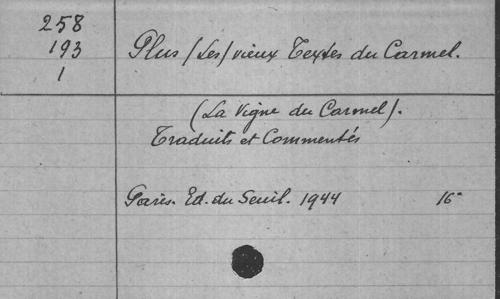 258
193
1
Plus (Les) vieux Textes du Carmel.
(La Vigne du Carmel).
Traduits et Commentés
Paris. Ed. du Seuil. 1944 16°